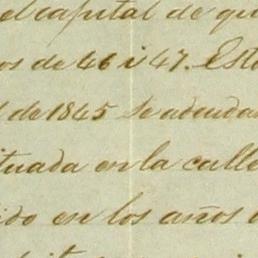 el capital de qu
os de 46 i 47. Est
l de 1845 se adeudan
ituada en la calle
ido en los años d